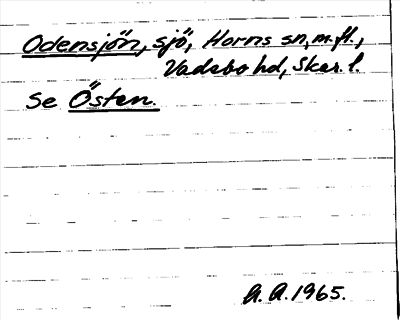 Odensjön, sjö, Horns sn, m.fl.,
Vadsbo hd, Skar. l.
Se Östen.
A. A. 1965.